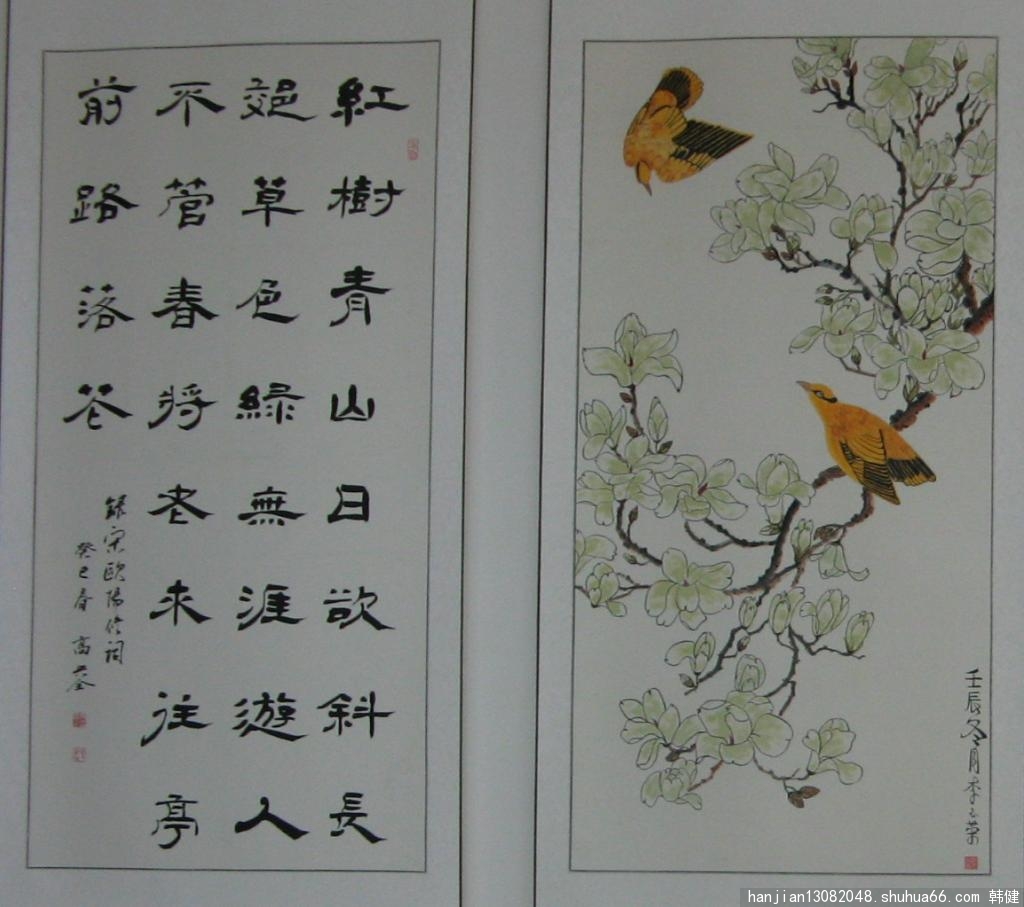 紅樹青山日欲斜長
郊草色綠無涯遊人
不管春將老來往亭
前路落花
錄宋歐陽修詞
癸巳春 高
壬辰冬月李荣
hanjian13082048.shuhua66.com 韩健